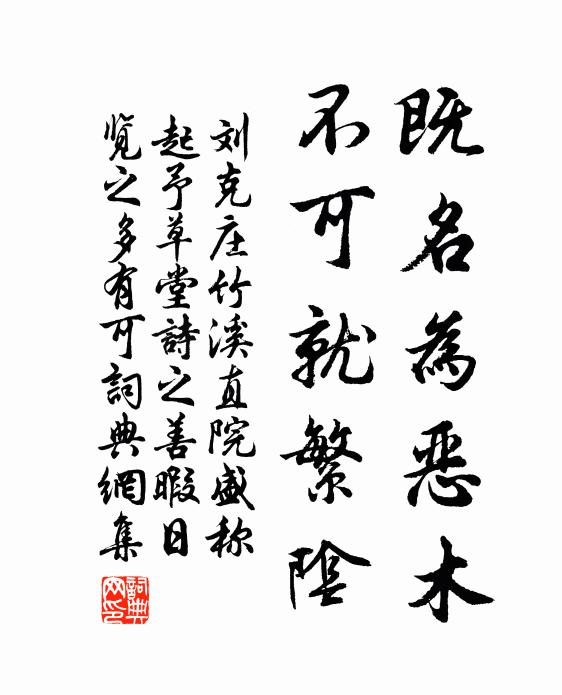 既名為恶木
不可就繁陰
刘克庄竹溪直院盛称
起予草堂詩之善暇日
览之多有可詞典網集
詞典網印